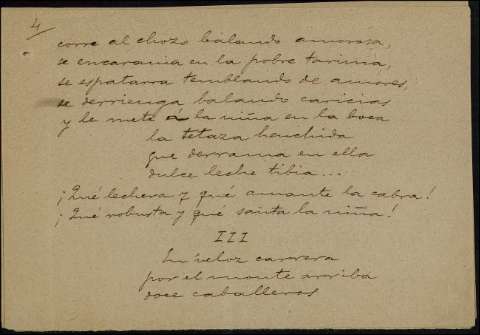 4
corre al chozo balando amorosa,
se encarama en la pobre tarima,
se espatarra temblando de amores,
se derrienga balando caricias
y le mete á la niña en la boca
la tetaza henchida
que derrama en ella
dulce leche tibia...
¡Qué lechera y qué amante la cabra!
¡Qué robusta y qué santa la niña!
III
En veloz carrera
por el monte arriba
doce caballeros